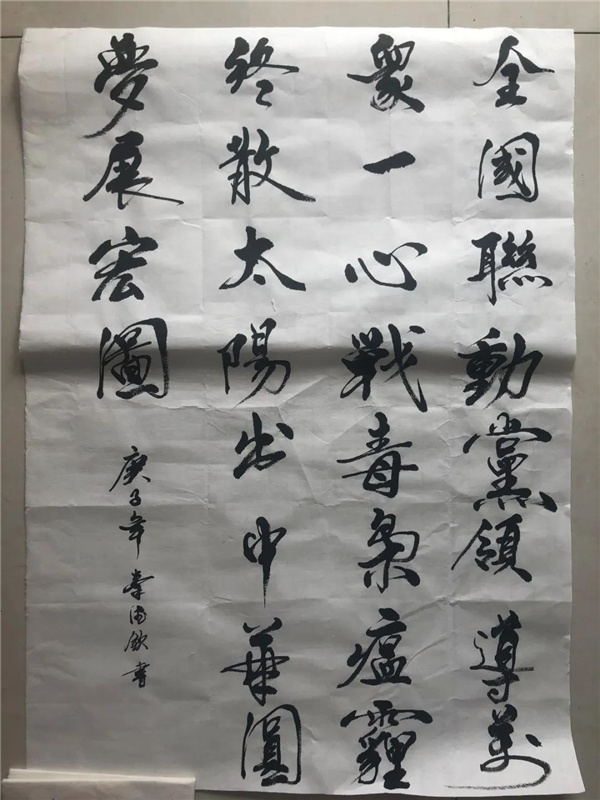 全國聯動黨領導萬
衆一心戰毒梟瘟霾
終散太陽出中華圓
夢展宏圖
庚子年 書